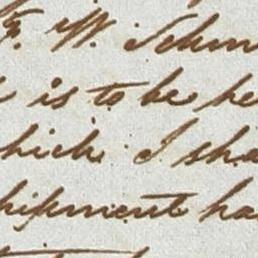 F. W. Schm
is to be he
hich I sha
hipment ha